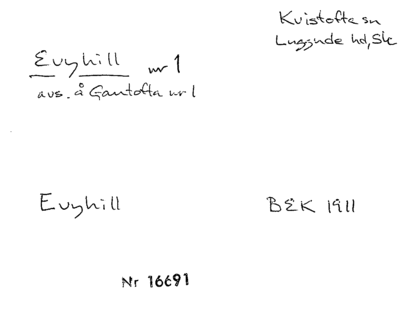 Kvistofta sn
Luggude hd, Sk
Evyhill nr 1
avs. å Gantofta nr 1
Evyhill
BEK 1911
Nr 16691